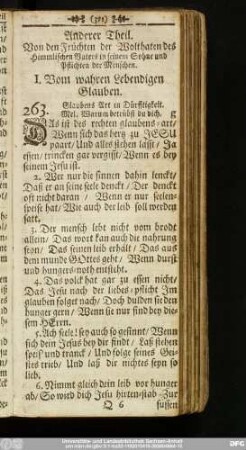 (381)
Anderer Theil.
Von den Früchten der Wolthaten des
Himmlischen Vaters in seinem Sohne und
Pflichten der Menschen.
I. Vom wahren Lebendigen
Glauben.
Glaubens Art in Dürfftigkeit.
263. Mel. Warum betrübst du dich.
DAs ist des rechten glaubens-art/
Wenn sich das hertz zu JESU
paart/ Und alles stehen lässt/ Ja
essen/ trincken gar vergisst/ Wenn es bey
seinem Jesu ist.
2. Wer nur die sinnen dahin lenckt/
Daß er an seine seele denckt/ Der denckt
offt nicht daran/ Wenn er nur seelen-
speise hat/ Wie auch der leib soll werden
satt.
3. Der mensch lebt nicht vom brodt
allein/ Das wort kan auch die nahrung
seyn/ Das seinen leib erhält/ Das aus
dem munde GOttes geht/ Wenn durst
und hungers-noth entsteht.
4. Das volck hat gar zu essen nicht/
Das Jesu nach der liebes-pflicht Im
glauben folget nach/ Doch dulden sie den
hunger gern/ Wenn sie nur sind bey die-
sem HErrn.
5. Ach seele! sey auch so gesinnt/ Wenn
sich dein Jesus bey dir findt/ Laß stehen
speis' und tranck/ Und folge seines Gei-
stes trieb/ Und laß dir nichts seyn so
lieb.
6. Nimmt gleich dein leib vor hunger
ab/ So wird dich Jesu hirten-stab Zur
Q 6 füssen
Universitäts- und Landesbibliothek Sachsen-Anhalt